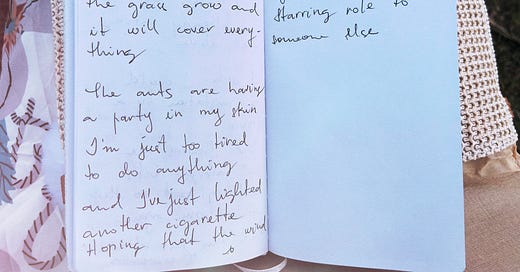 the grass grow and
it will cover every-
thing
The ants are having
a party in my skin
I'm just too tired
to do anything
and I've just lighted
another cigarette
Hoping that the wind
starring role to
someone else